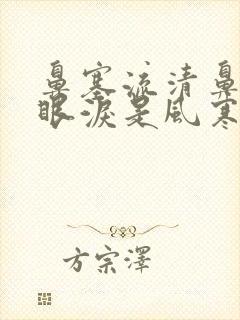 鼻塞流清鼻
眼淚是風寒
方宗澤